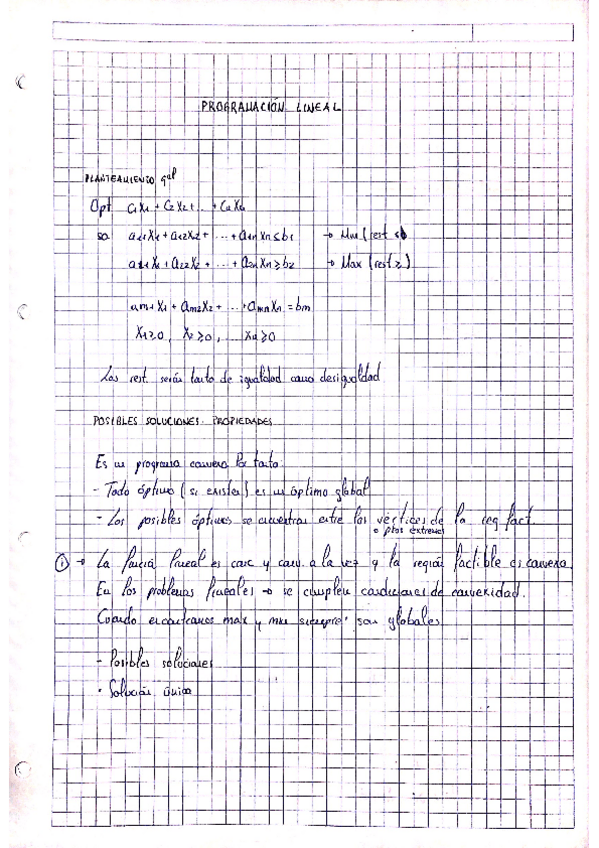 PROGRAMACIÓN LINEAL
PLANTEAMIENTO gal
Opt C1X1 + C2X2 + ... + CnXn
sa a11X1 + a12X2 + ... + a1nXn ≤ b1 → Min (rest ≤)
a21X1 + a22X2 + ... + a2nXn ≥ b2 → Max (rest ≥)
am1X1 + am2X2 + ... + amnXn = bm
X1 ≥ 0, X2 ≥ 0, ... Xn ≥ 0
Las rest. serán tanto de igualdad como desigualdad
POSIBLES SOLUCIONES. PROPIEDADES
Es un programa convexo. Por tanto:
- Todo óptimo (si existe) es un óptimo global
- Los posibles óptimos se encuentran entre los vértices de la reg fact.
o ptos extremos
① → La función lineal es conc y conv. a la vez y la región factible es convexa
En los problemas lineales → se cumplen condiciones de convexidad.
Cuando encontramos max y min siempre son globales
- Posibles soluciones
• Solución única